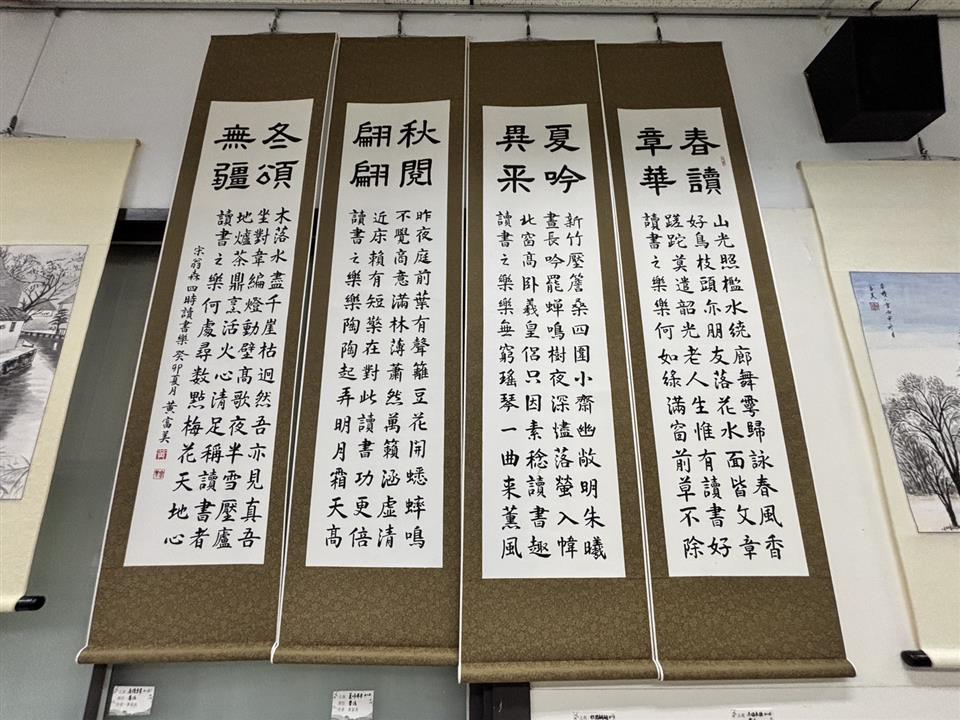 春讀
章華
山光照檻水繞廊舞雩歸詠春風香
好鳥枝頭亦朋友落花水面皆文章
蹉跎莫遣韶光老人生惟有讀書好
讀書之樂樂何如綠滿窗前草不除
夏吟
異采
新竹壓簷桑四圍小齋幽敞明朱曦
晝長吟罷蟬鳴樹夜深燼落螢入幃
北窗髙卧羲皇侶只因素稔讀書趣
讀書之樂樂無窮瑤琴一曲来薰風
秋閱
翩翩
昨夜庭前葉有聲籬豆花開蟋蟀鳴
不覺商意滿林薄蕭然萬籟涵虛清
近床賴有短檠在對此讀書功更倍
讀書之樂樂陶陶起弄明月霜天髙
冬頌
無疆
木落水盡千崖枯迥然吾亦見真吾
坐對韋編燈動壁髙歌夜半雪壓廬
地爐茶鼎烹活火心清足稱讀書者
讀書之樂何處尋数點梅花天地心
宋翁森四時讀書樂 癸卯夏月 黃富美